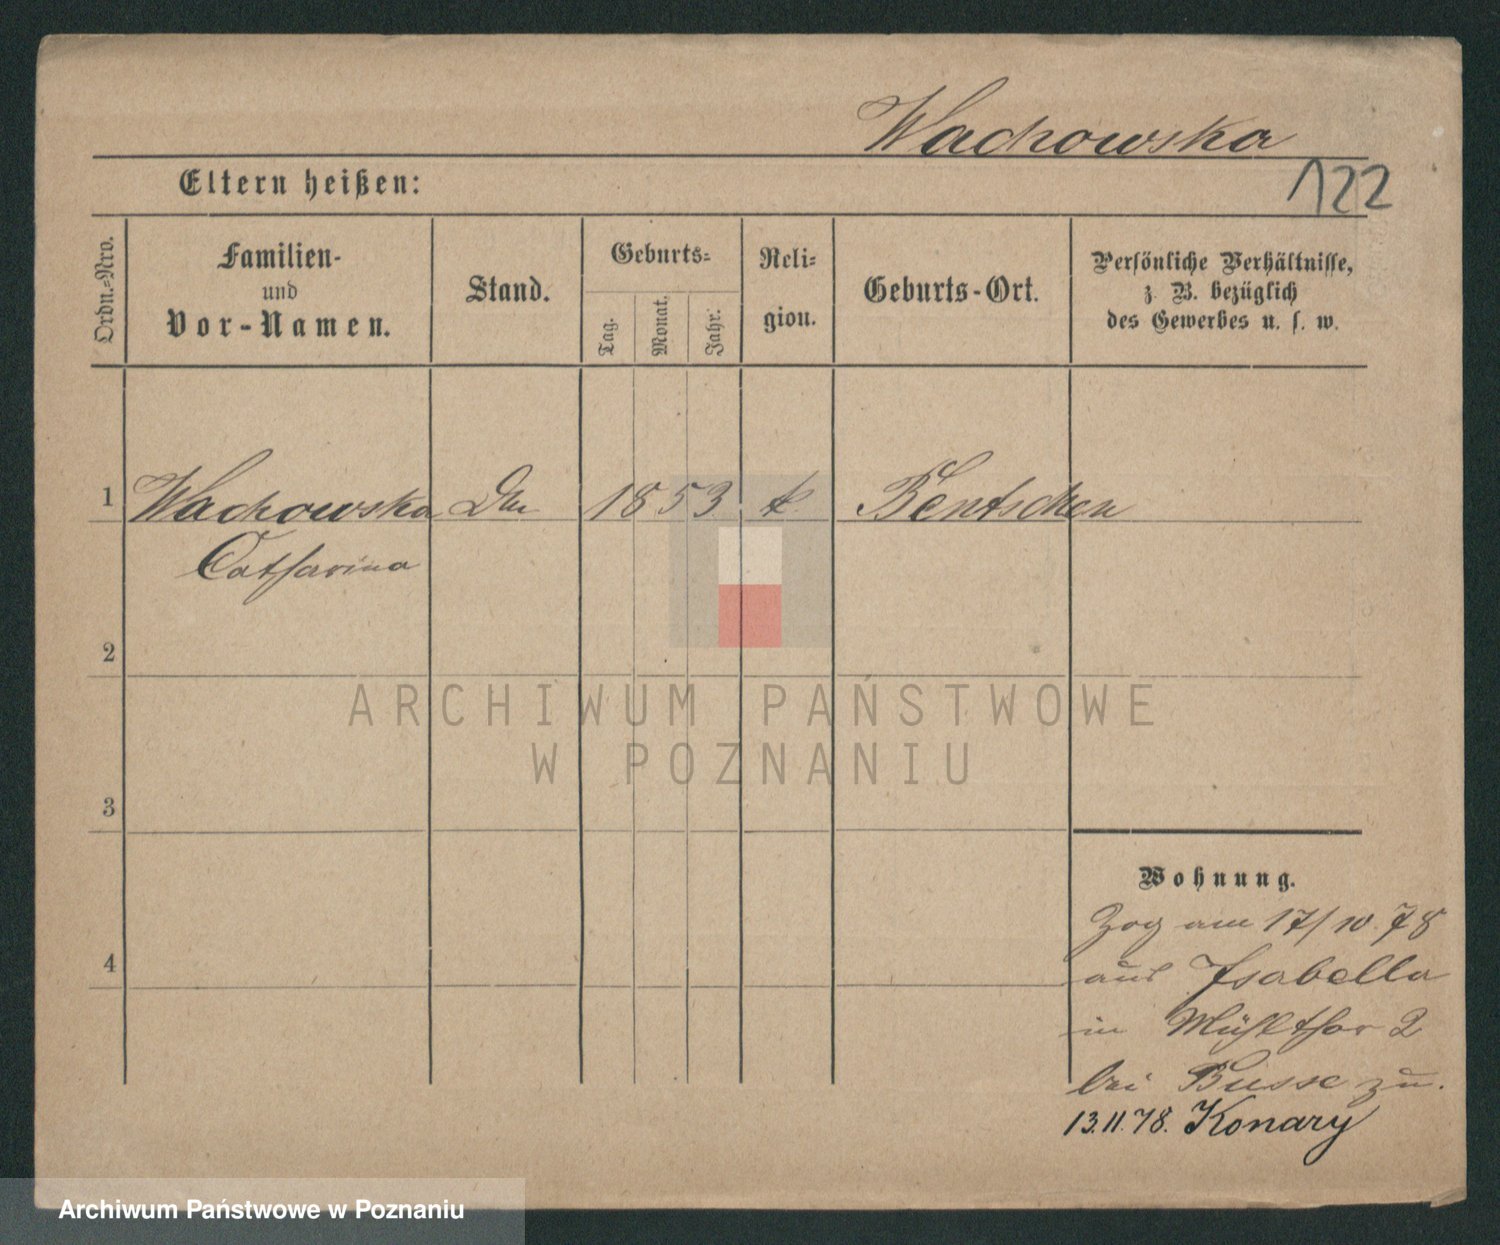 Wachowska
122
Eltern heißen:
Ordn.=Nro.
Familien-
und
Vor-Namen.
Stand.
Geburts=
Tag.
Monat.
Jahr.
Reli=
gion.
Geburts-Ort.
Persönliche Verhältnisse,
z. B. bezüglich
des Gewerbes u. s. w.
1 Wachowska 1853 k Bentschen
Catharina
2
3
4
ARCHIWUM PAŃSTWOWE
W POZNANIU
Wohnung.
Zog am 17/10.78
aus Isabella
in Mühlthor 2
bei Busse zu.
13.11.78. Konary
Archiwum Państwowe w Poznaniu